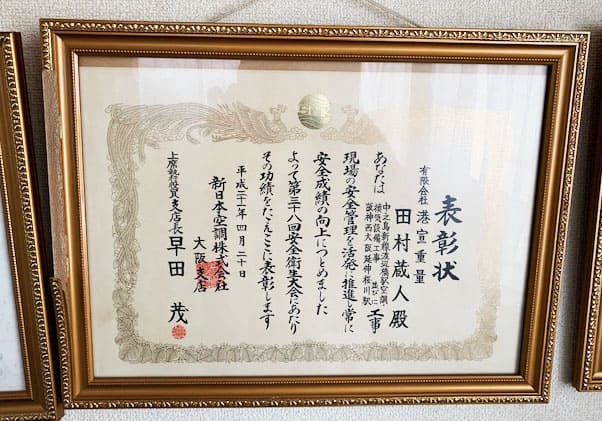 表彰状
有限会社 港宣重量
田村蔵人殿
あなたは
中之島新線渡辺橋駅空調
換気設備工事並びに
阪神西大阪延伸桜川駅
工事
現場の安全管理を活発に推進し常に
安全成績の向上につとめました
よって第三十八回安全衛生大会にあたり
その功績をたたえここに表彰します
平成二十年四月二十日
新日本空調株式会社
大阪支店
上席執行役員支店長 早田茂